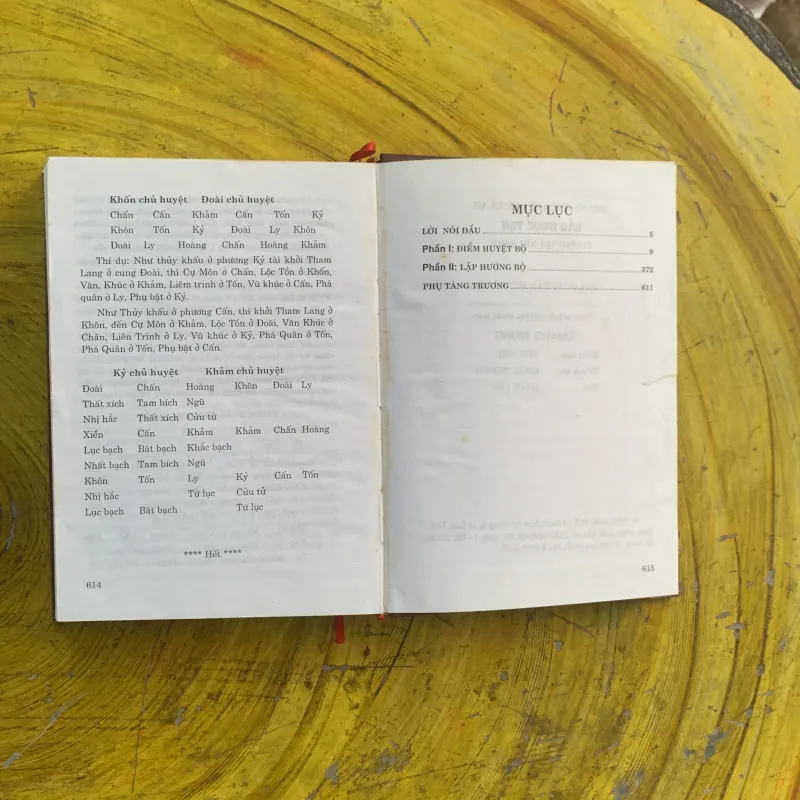 Khốn chủ huyệt Đoài chủ huyệt
Chấn Cấn Khảm Cấn Tốn Kỷ
Khôn Tốn Kỷ Đoài Ly Khôn
Đoài Ly Hoàng Chấn Hoàng Khảm
Thí dụ: Như thủy khẩu ở phương Kỷ tài khởi Tham
Lang ở cung Đoài, thì Cự Môn ở Chấn, Lộc Tồn ở Khốn,
Văn, Khúc ở Khảm, Liêm trinh ở Tốn, Vũ khúc ở Cấn, Phá
quân ở Ly, Phụ bật ở Kỷ.
Như Thủy khẩu ở phương Cấn, thi khởi Tham Lang ở
Khôn, đến Cự Môn ở Khảm, Lộc Tồn ở Đoài, Văn Khúc ở
Chấn, Liên Trinh ở Ly, Vũ khúc ở Kỷ, Phá Quân ở Tốn,
Phá Quân ở Tốn, Phụ bật ở Cấn.
Kỷ chủ huyệt Khảm chủ huyệt
Đoài Chấn Hoàng Khôn Đoài Ly
Thất xích Tam bích Ngũ
Nhị hắc Thất xích Cửu tử
Xiển Cấn Khảm Khảm Chấn Hoàng
Lục bạch Bát bạch Khắc bạch
Nhất bạch Tam bích Ngũ
Khôn Tốn Ly Kỷ Cấn Tốn
Nhị hắc Tứ lục Cửu tử
Lục bạch Bát bạch Tứ lục
**** Hết ****
614
MỤC LỤC
LỜI NÓI ĐẦU 5
Phần I: ĐIỂM HUYỆT BỘ 9
Phần II: LẬP HƯỚNG BỘ 372
PHỤ TÁNG TRƯƠNG 611
615